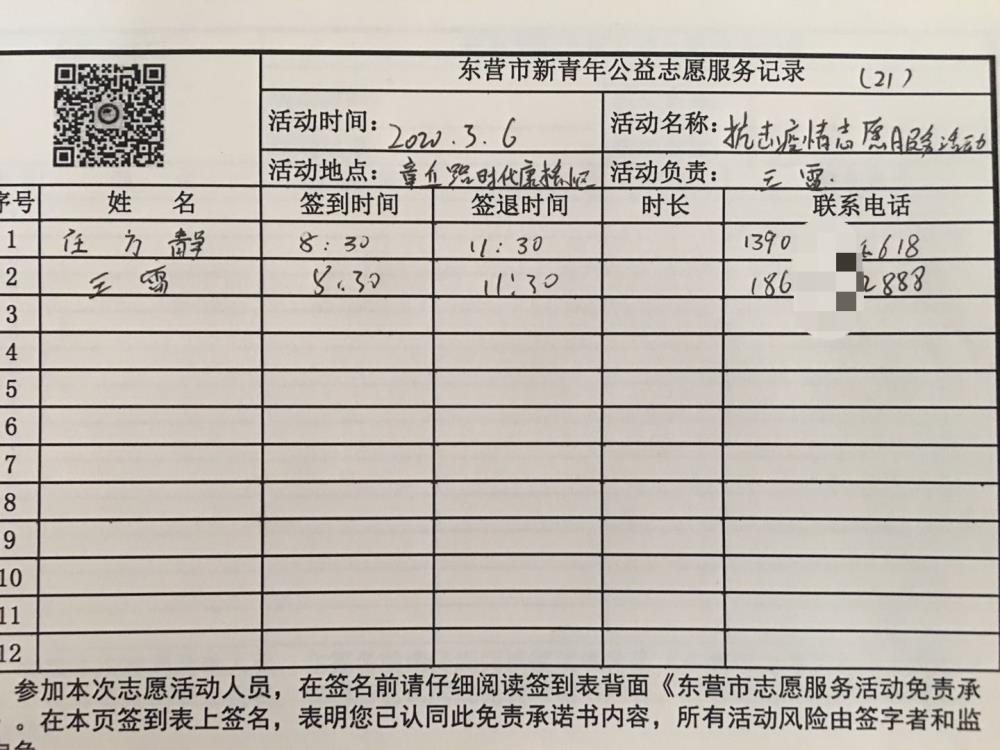 东营市新青年公益志愿服务记录 (21)
活动时间：2020.3.6 活动名称：抗击疫情志愿服务活动
活动地点： 活动负责：王雷
序号 姓名 签到时间 签退时间 时长 联系电话
1 任方静 8:30 11:30 1390 618
2 王雷 8:30 11:30 186 2888
3
4
5
6
7
8
9
10
11
12
参加本次志愿活动人员，在签名前请仔细阅读签到表背面《东营市志愿服务活动免责承
》。在本页签到表上签名，表明您已认同此免责承诺书内容，所有活动风险由签字者和监